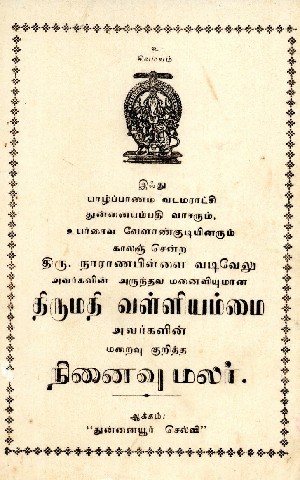 உ
சிவமயம்
இஃது
யாழ்ப்பாணம் வடமராட்சி
துன்னையம்பதி வாசரும்,
உயர்சைவ வேளாண்குடியினரும்
காலஞ் சென்ற
திரு. நாராணபிள்ளை வடிவேலு
அவர்களின் அருந்தவ மனைவியுமான
திருமதி வள்ளியம்மை
அவர்களின்
மறைவு குறித்த
நினைவு மலர்.
ஆக்கம்:
"துன்னையூர் செல்வி"